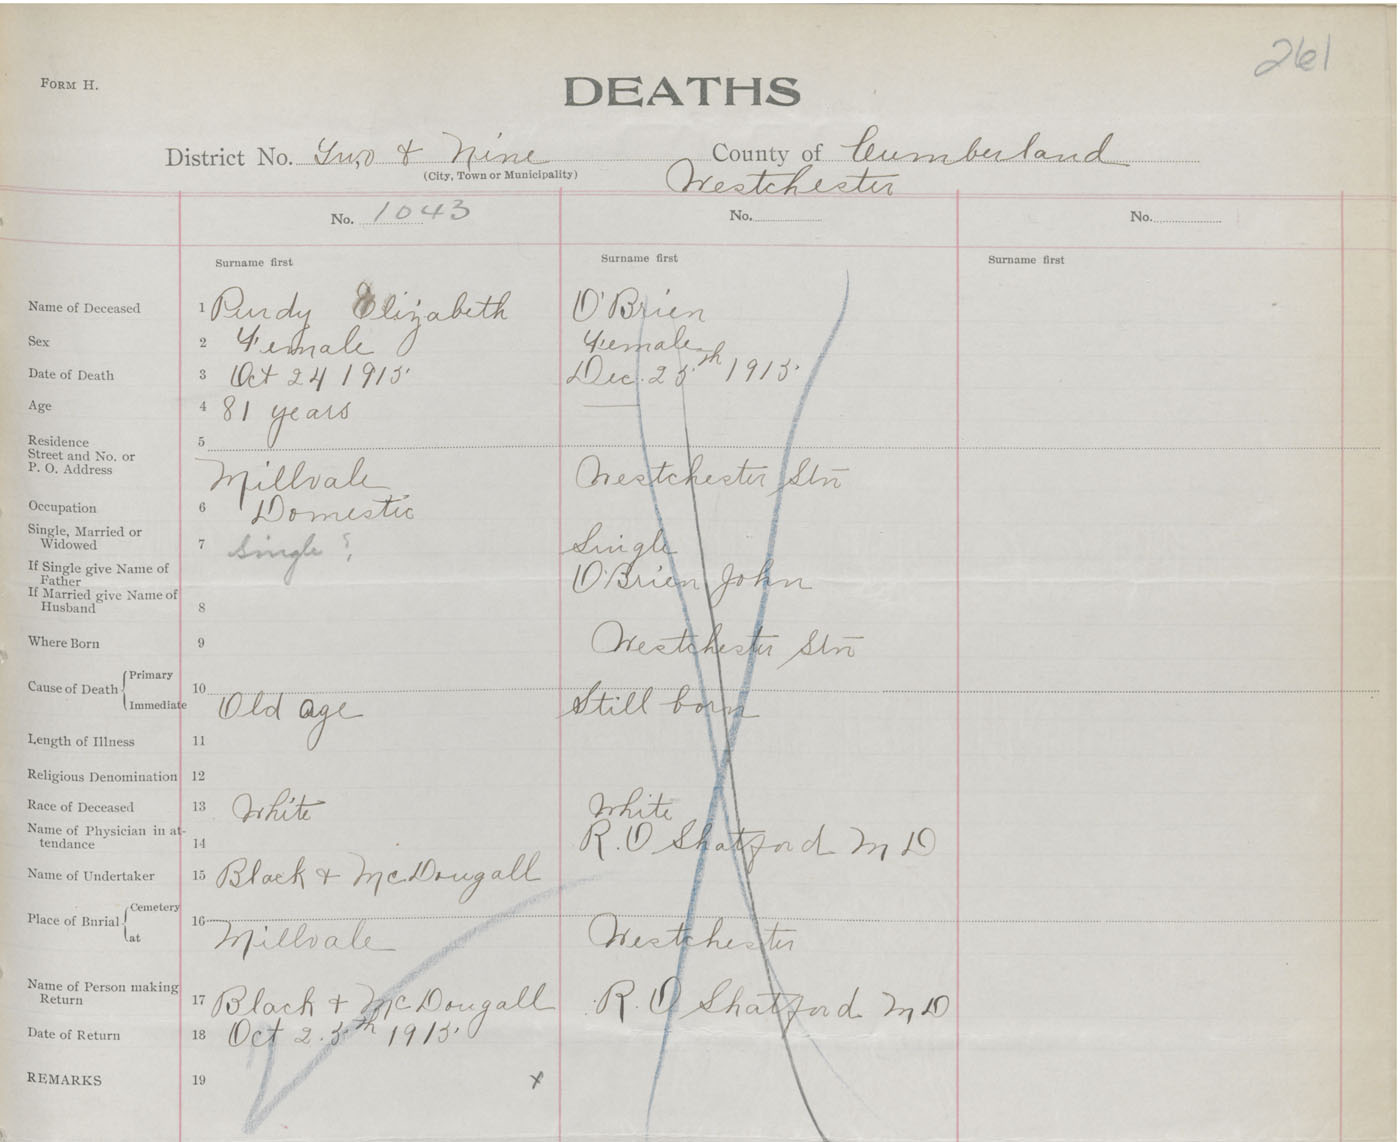 261
FORM H.
DEATHS
District No. Two & Nine County of Cumberland
(City, Town or Municipality)
Westchester
No. 1043 No. No.
Surname first Surname first Surname first
Name of Deceased 1 Purdy Elizabeth O'Brien
Sex 2 Female Female
Date of Death 3 Oct 24 1915 Dec. 25th 1915
Age 4 81 years —
Residence 5
Street and No. or
P. O. Address Millvale Westchester Stn
Occupation 6 Domestic
Single, Married or
Widowed 7 Single ? Single
If Single give Name of
Father O'Brien John
If Married give Name of
Husband 8
Where Born 9 Westchester Stn
Cause of Death Primary 10
Immediate Old age Still born
Length of Illness 11
Religious Denomination 12
Race of Deceased 13 White White
Name of Physician in at-
tendance 14 R. D Shatford M D
Name of Undertaker 15 Black & McDougall
Place of Burial Cemetery 16
at Millvale Westchester
Name of Person making
Return 17 Black & McDougall R. D Shatford M D
Date of Return 18 Oct 25th 1915
REMARKS 19 x